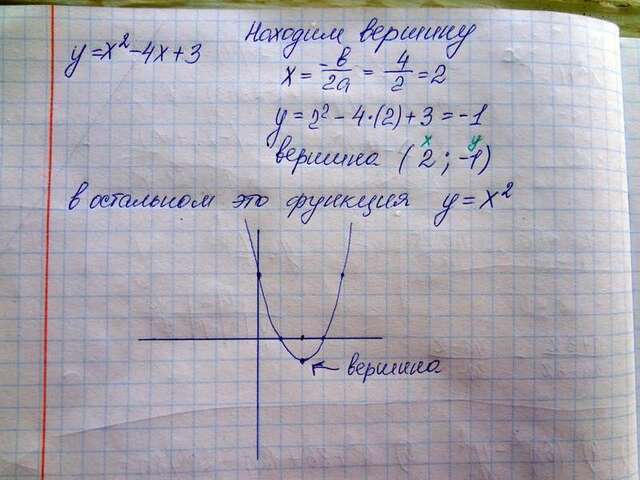 y=x²-4x+3
Находим вершину
x = -в/2a = 4/2 = 2
y = 2² - 4·(2) + 3 = -1
x y
вершина (2; -1)
в остальном это функция y = x²
вершина